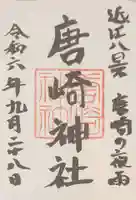 近江八景 唐崎の夜雨
唐崎神社
令和六年九月二十八日